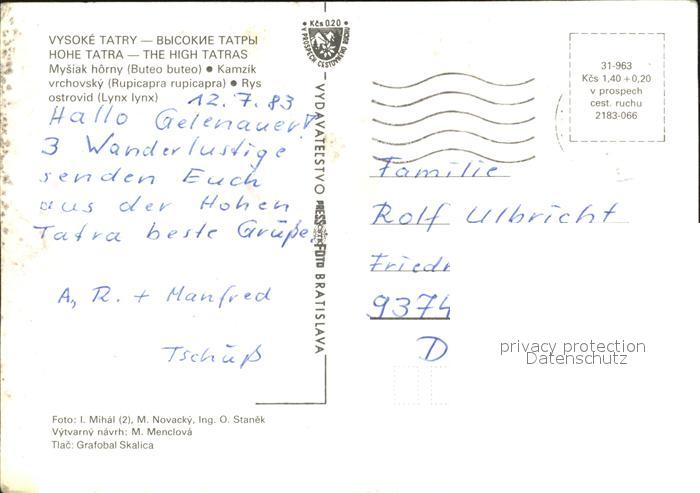 VYSOKÉ TATRY — ВЫСОКИЕ ТАТРЫ
HOHE TATRA — THE HIGH TATRAS
Myšiak hôrny (Buteo buteo) ● Kamzík
vrchovský (Rupicapra rupicapra) ● Rys
ostrovid (Lynx lynx)
12.7.83
Hallo Gelenauer!
3 Wanderlustige
senden Euch
aus der Hohen
Tatra beste Grüße.
A, R. + Manfred
Tschüß
Foto: I. Mihál (2), M. Novacký, Ing. O. Staněk
Výtvarný návrh: M. Menclová
Tlač: Grafobal Skalica
Kčs 0.20
V PROSPECH CESTOVNÉHO RUCHU
VYDAVATEĽSTVO PRESSFOTO BRATISLAVA
31-963
Kčs 1,40 + 0,20
v prospech
cest. ruchu
2183-066
Familie
Rolf Ulbricht
Friedr
9374
D
privacy protection
Datenschutz